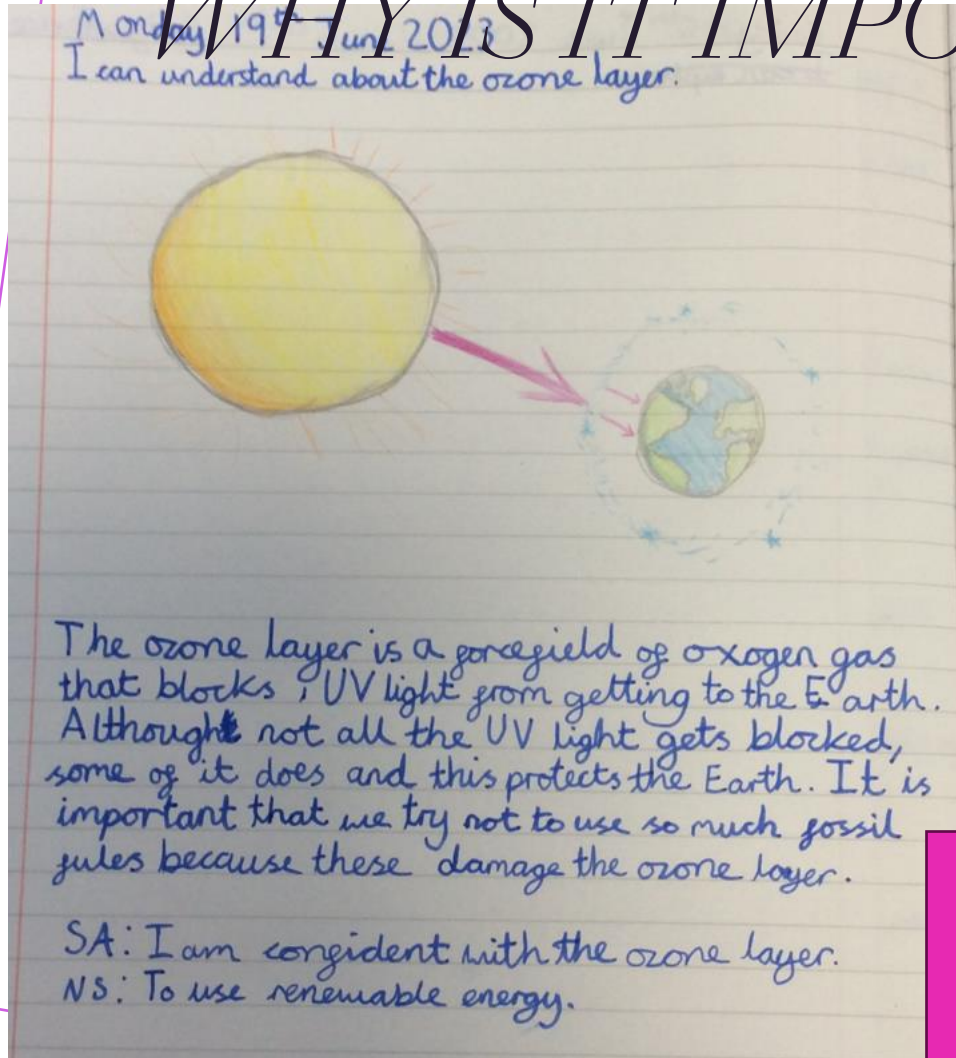 WHY IS IT IMPO
Monday 19th June 2023
I can understand about the ozone layer.
The ozone layer is a forcefield of oxogen gas
that blocks , UV light from getting to the Earth.
Although not all the UV light gets blocked,
some of it does and this protects the Earth. It is
important that we try not to use so much fossil
fules because these damage the ozone layer.
SA: I am confident with the ozone layer.
NS: To use renewable energy.